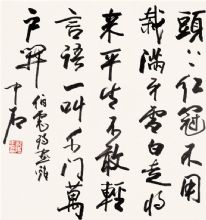 頭上仁冠不用
裁滿身雪白走將
来平生不敢輕
言語一叫千門萬
户開
伯虎詩意
中石